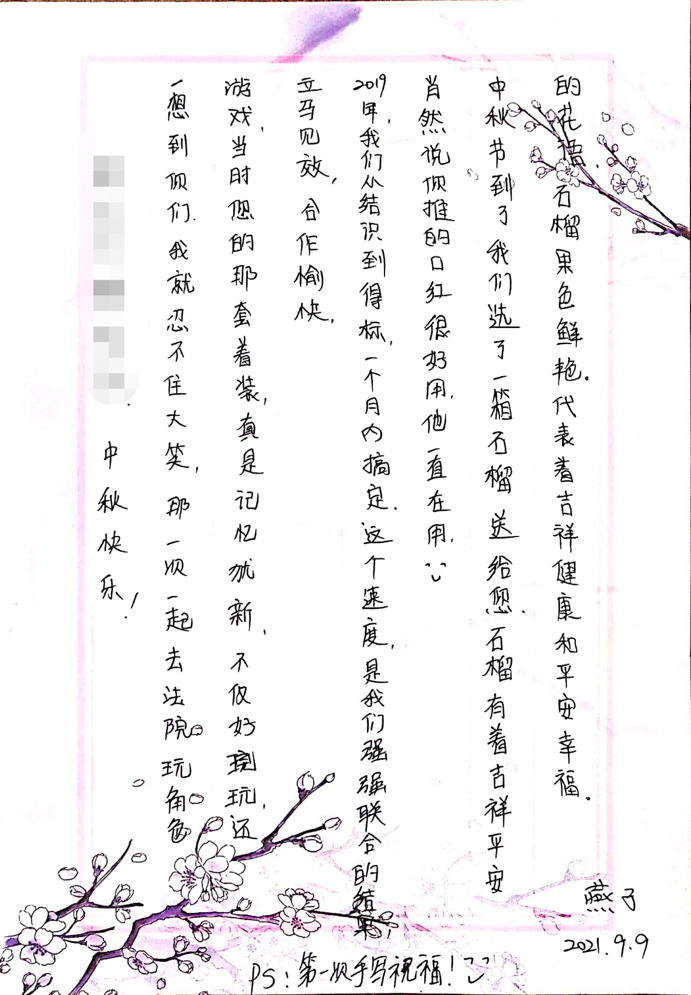 中秋快乐!
一想到你们,我就忍不住大笑,那一次一起去法院玩角色
游戏,当时您的那套着装,真是记忆犹新,不仅好玩,还
立马见效,合作愉快,
2019年,我们从结识到得标,一个月内搞定.这个速度,是我们强强联合的结果,
肖然说你推的口红很好用,他一直在用.
中秋节到了我们选了一箱石榴送给您.石榴有着吉祥平安
的花语,石榴果色鲜艳.代表着吉祥健康和平安幸福.
燕子
2021.9.9
PS:第一次手写祝福!